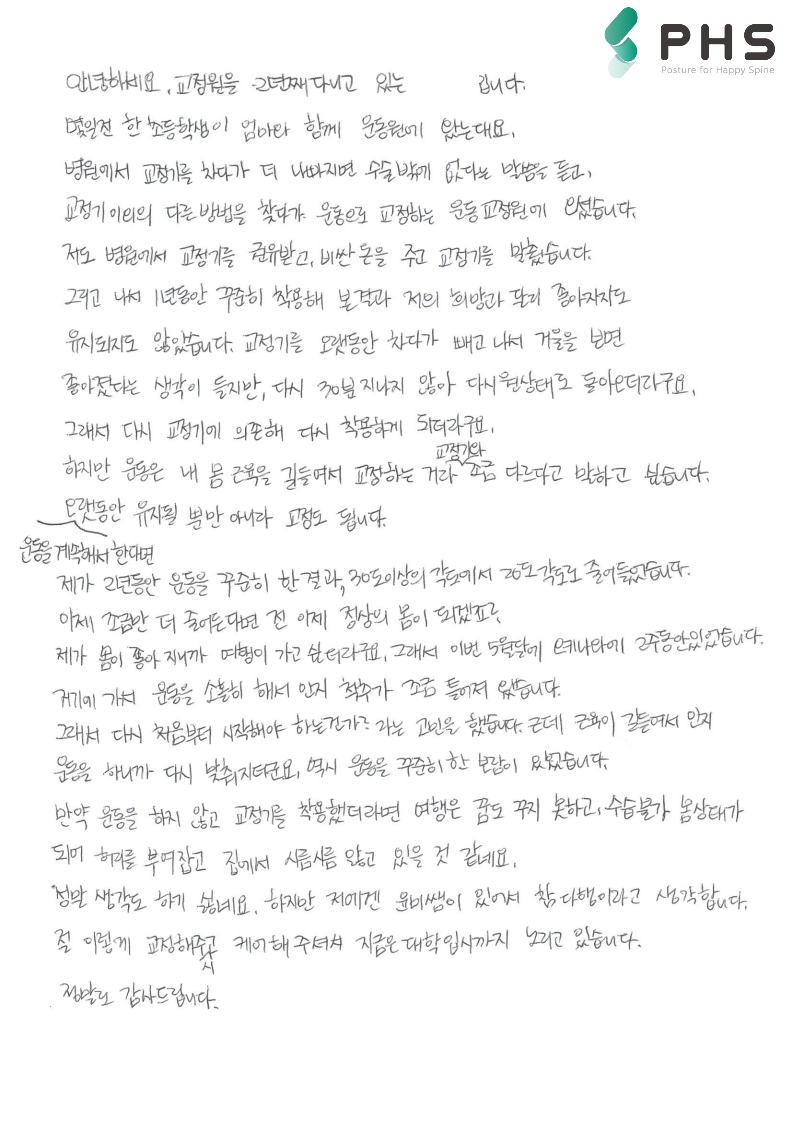 PHS
Posture for Happy Spine
안녕하세요, 교정원을 2년째 다니고 있는 입니다.
몇일전 한 초등학생이 엄마와 함께 운동원에 왔는데요,
병원에서 교정기를 차다가 더 나빠지면 수술밖에 없다는 말씀을 듣고,
교정기 이외의 다른 방법을 찾다가 운동으로 교정하는 운동 교정원에 오셨습니다.
저도 병원에서 교정기를 권유받고, 비싼 돈을 주고 교정기를 맞췄습니다.
그리고 나서 1년동안 꾸준히 착용해 본결과 저의 희망과 달리 좋아지지도
유지되지도 않았습니다. 교정기를 오랫동안 차다가 빼고 나서 거울을 보면
좋아졌다는 생각이 들지만, 다시 30분 지나지 않아 다시 원상태로 돌아오더라구요,
그래서 다시 교정기에 의존해 다시 착용하게 되더라구요,
하지만 운동은 내 몸 근육을 길들여서 교정하는 거라 교정기와 조금 다르다고 말하고 싶습니다.
오랫동안 유지될 뿐만 아니라 교정도 됩니다.
운동을 계속해서 한다면
제가 2년동안 운동을 꾸준히 한 결과, 30도이상의 각도에서 20도 각도로 줄어들었습니다.
이제 조금만 더 줄어든다면 전 이제 정상의 몸이 되겠죠?
제가 몸이 좋아 지니까 여행이 가고 싶더라구요, 그래서 이번 5월달에 오키나와에 2주동안있었습니다.
거기에 가서 운동을 소홀히 해서 인지 척추가 조금 틀어져 있었습니다.
그래서 다시 처음부터 시작해야 하는건가? 라는 고민을 했습니다. 근데 근육이 길들여서 인지
운동을 하니까 다시 맞춰지더군요, 역시 운동을 꾸준히 한 보람이 있었습니다.
만약 운동을 하지 않고 교정기를 착용했더라면 여행은 꿈도 꾸지 못하고, 수습불가 몸상태가
되어 허리를 부여잡고 집에서 시름시름 앓고 있을 것 같네요,
정말 생각도 하기 싫네요, 하지만 저에겐 윤비쌤이 있어서 참 다행이라고 생각합니다.
절 이렇게 교정해주고 케어해 주셔서 지금은 대학입시까지 노리고 있습니다.
시
정말로 감사드립니다.